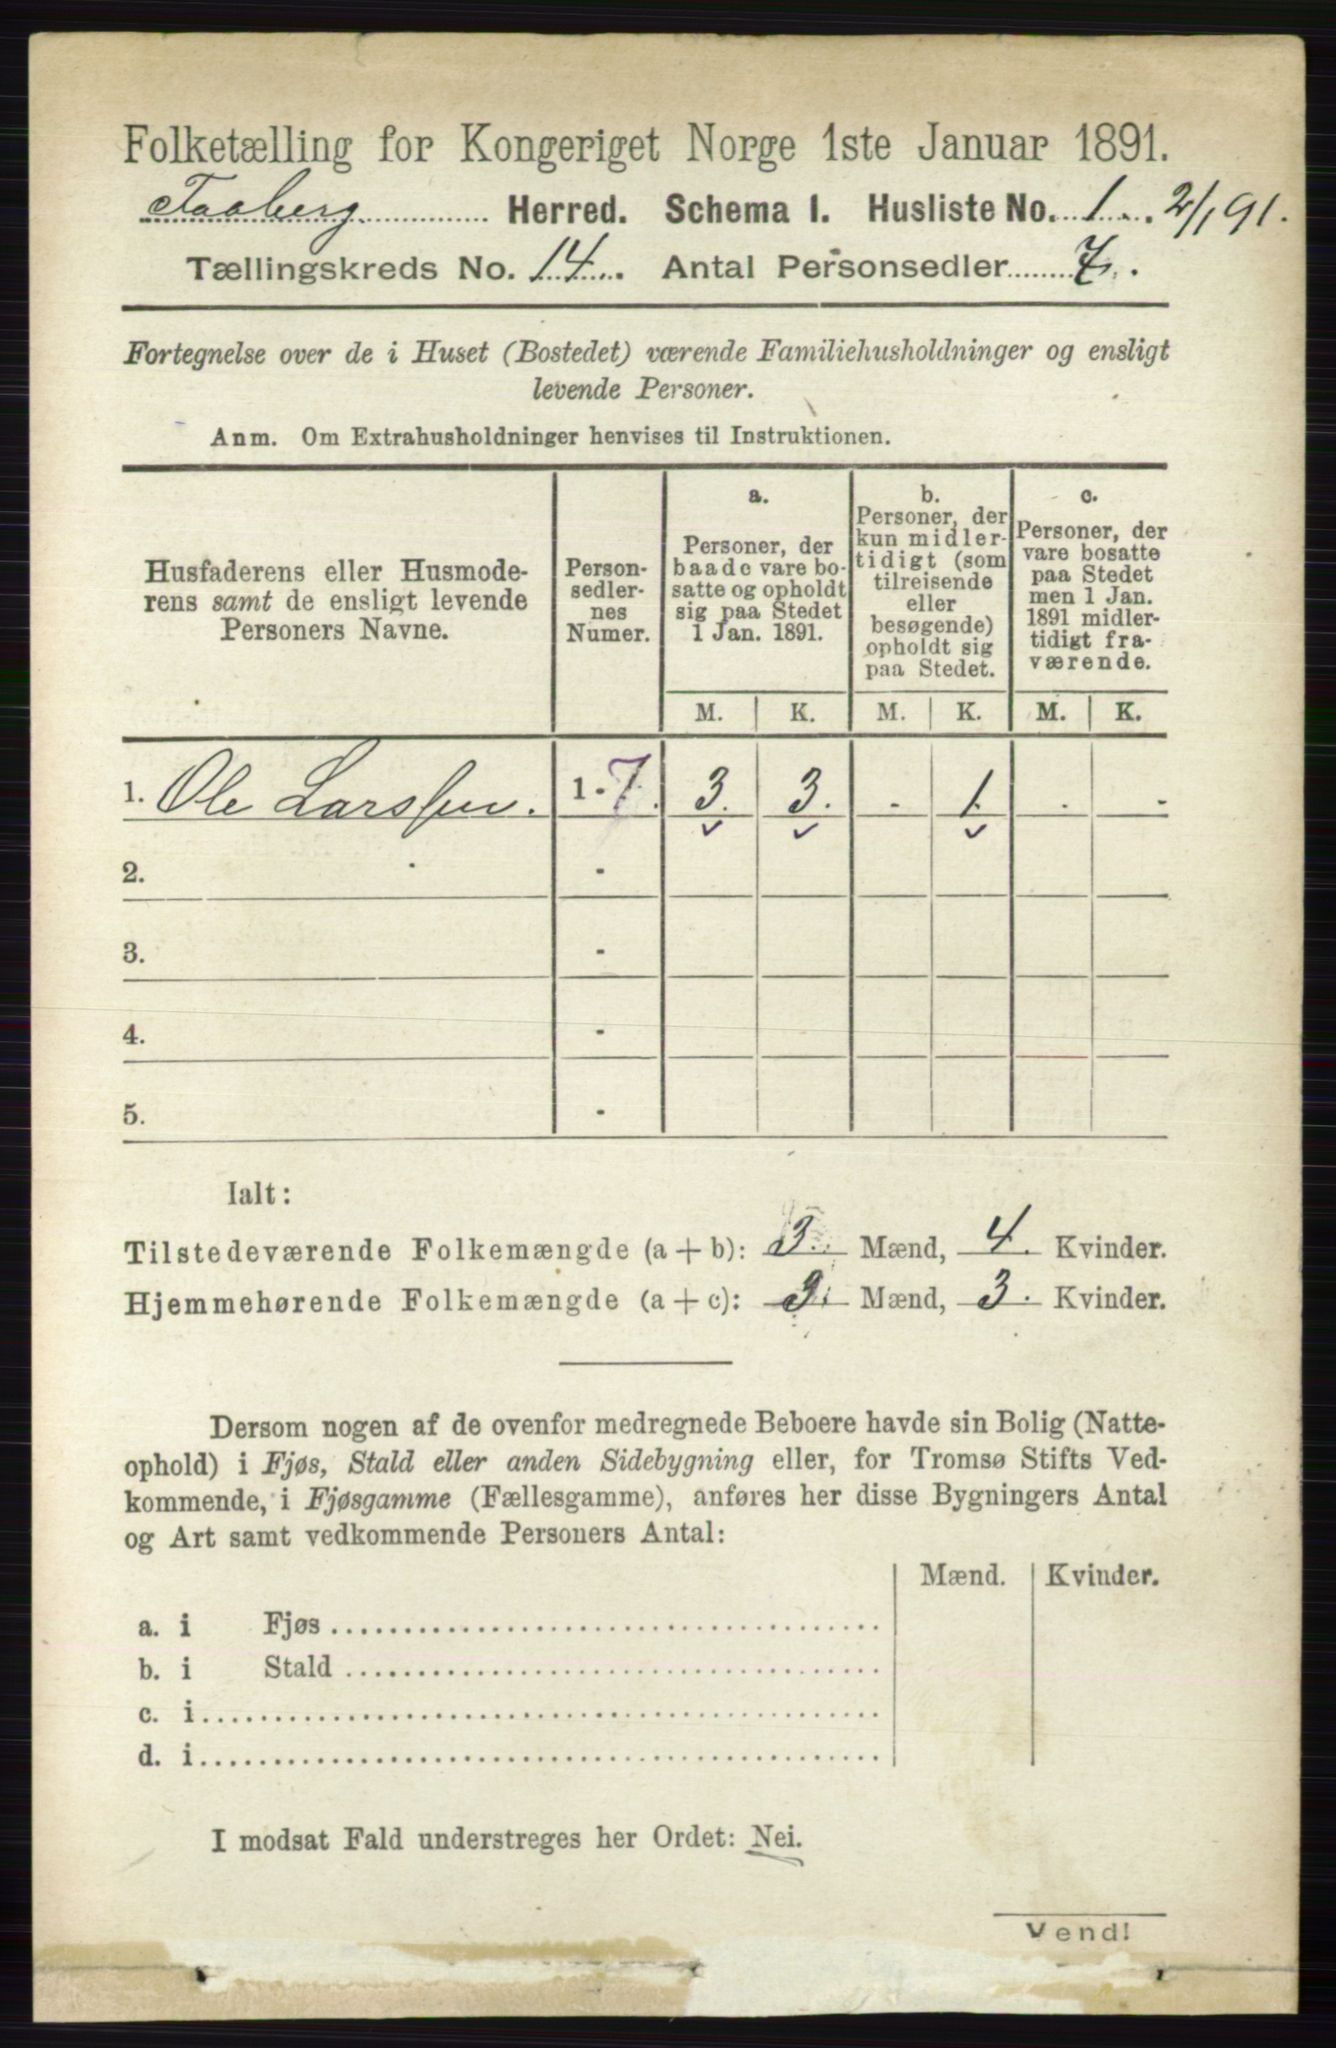 Folketælling for Kongeriget Norge 1ste Januar 1891.
Faaberg Herred. Schema I. Husliste No. 1. 2/1 91.
Tællingskreds No. 14. Antal Personsedler 7.
Fortegnelse over de i Huset (Bostedet) værende Familiehusholdninger og ensligt
levende Personer.
Anm. Om Extrahusholdninger henvises til Instruktionen.
Husfaderens eller Husmode-
rens samt de ensligt levende
Personers Navne.
Person-
sedler-
nes
Numer.
a.
Personer, der
baade vare bo-
satte og opholdt
sig paa Stedet
1 Jan. 1891.
b.
Personer, der
kun midler-
tidigt (som
tilreisende
eller
besøgende)
opholdt sig
paa Stedet.
c.
Personer, der
vare bosatte
paa Stedet
men 1 Jan.
1891 midler-
tidigt fra-
værende.
M. K. M. K. M. K.
1. Ole Larssen. 1 - 7. 3. 3. - 1. . -
2. -
3. -
4. -
5. -
Ialt:
Tilstedeværende Folkemængde (a + b): 3. Mænd, 4. Kvinder.
Hjemmehørende Folkemængde (a + c): 3. Mænd, 3. Kvinder.
Dersom nogen af de ovenfor medregnede Beboere havde sin Bolig (Natte-
ophold) i Fjøs, Stald eller anden Sidebygning eller, for Tromsø Stifts Ved-
kommende, i Fjøsgamme (Fællesgamme), anføres her disse Bygningers Antal
og Art samt vedkommende Personers Antal:
Mænd. Kvinder.
a. i Fjøs
b. i Stald
c. i
d. i
I modsat Fald understreges her Ordet: Nei.
Vend!